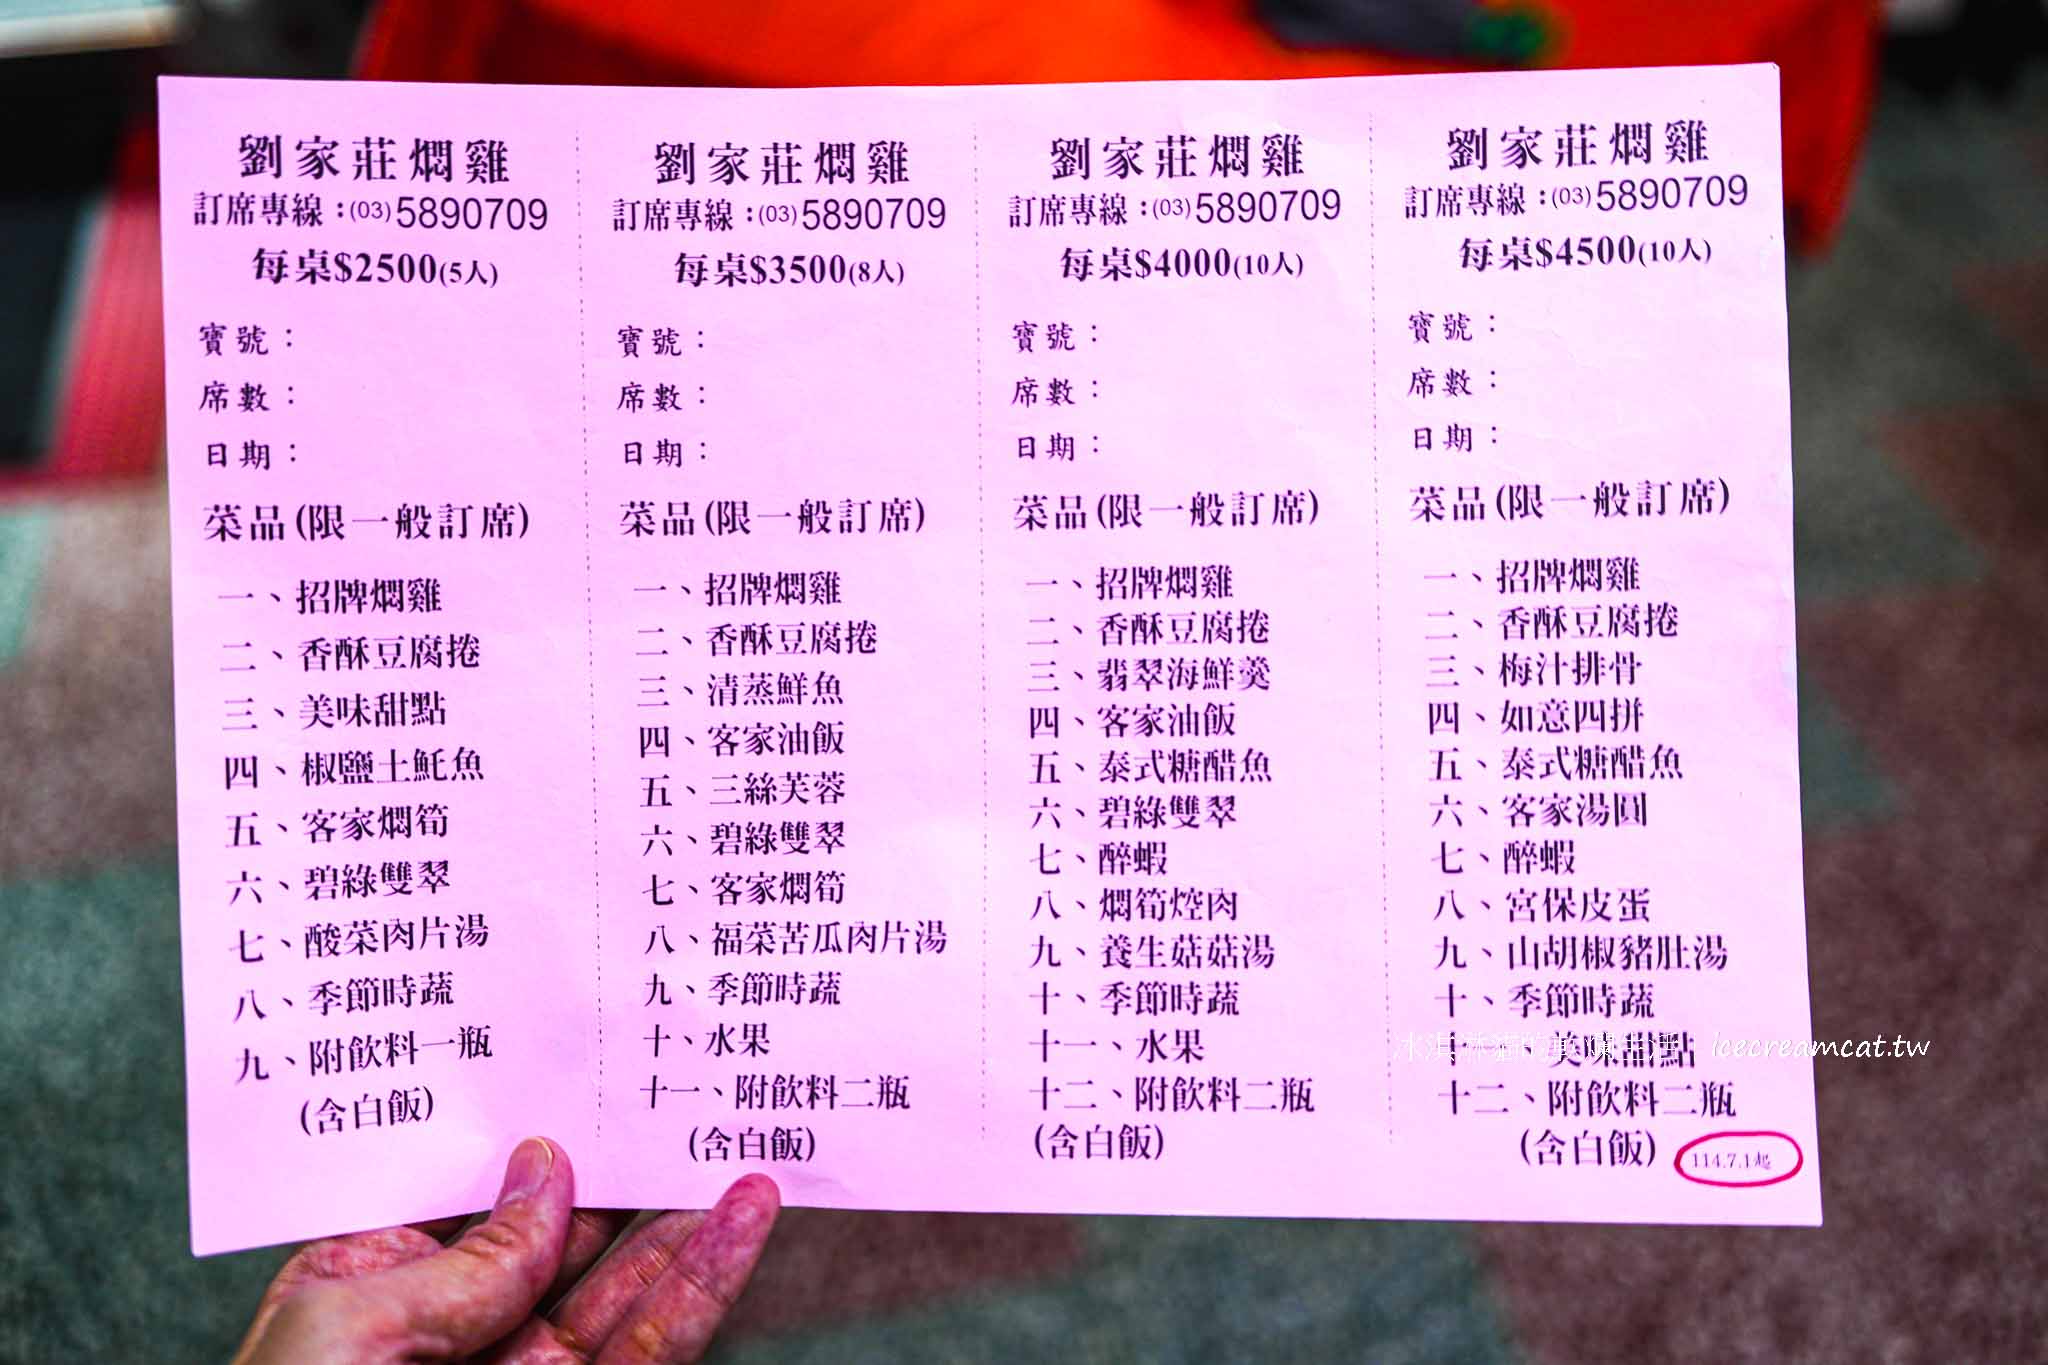 劉家莊燜雞
訂席專線：(03)5890709
每桌$2500(5人)
寶號：
席數：
日期：
菜品(限一般訂席)
一、招牌燜雞
二、香酥豆腐捲
三、美味甜點
四、椒鹽土魠魚
五、客家燜筍
六、碧綠雙翠
七、酸菜肉片湯
八、季節時蔬
九、附飲料一瓶
(含白飯)
劉家莊燜雞
訂席專線：(03)5890709
每桌$3500(8人)
寶號：
席數：
日期：
菜品(限一般訂席)
一、招牌燜雞
二、香酥豆腐捲
三、清蒸鮮魚
四、客家油飯
五、三絲芙蓉
六、碧綠雙翠
七、客家燜筍
八、福菜苦瓜肉片湯
九、季節時蔬
十、水果
十一、附飲料二瓶
(含白飯)
劉家莊燜雞
訂席專線：(03)5890709
每桌$4000(10人)
寶號：
席數：
日期：
菜品(限一般訂席)
一、招牌燜雞
二、香酥豆腐捲
三、翡翠海鮮羹
四、客家油飯
五、泰式糖醋魚
六、碧綠雙翠
七、醉蝦
八、燜筍焢肉
九、養生菇菇湯
十、季節時蔬
十一、水果
十二、附飲料二瓶
(含白飯)
劉家莊燜雞
訂席專線：(03)5890709
每桌$4500(10人)
寶號：
席數：
日期：
菜品(限一般訂席)
一、招牌燜雞
二、香酥豆腐捲
三、梅汁排骨
四、如意四拼
五、泰式糖醋魚
六、客家湯圓
七、醉蝦
八、宮保皮蛋
九、山胡椒豬肚湯
十、季節時蔬
十一、美味甜點
十二、附飲料二瓶
(含白飯)
114.7.1起
icecreamcat.tw